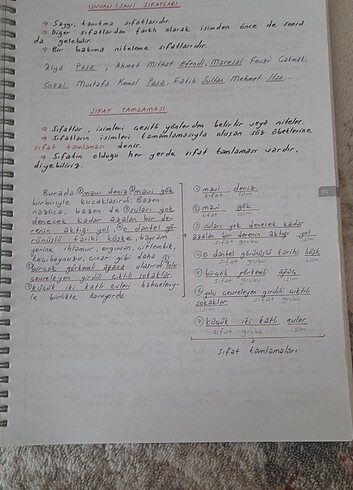 UNVAN (SAN) SIFATLARI
→ Saygı, tanıtma sıfatlarıdır.
→ Diğer sıfatlardan farklı olarak isimden önce de sonra
da gelebilir.
→ Bir bakıma niteleme sıfatlarıdır.
Ziya Paşa, Ahmet Mithat Efendi, Mareşal Fevzi Çakmak,
Gazi Mustafa Kemal Paşa, Fatih Sultan Mehmet Han...
SIFAT TAMLAMASI
→ Sıfatlar, isimleri çeşitli yönlerden belirtir veya niteler.
→ Sıfatların isimleri tamamlamasıyla oluşan söz öbeklerine
sıfat tamlaması denir.
→ Sıfatın olduğu her yerde sıfat tamlaması vardır,
diyebiliriz.
Burada ① mavi deniz ② mavi gök
birbiriyle kucaklaşırdı. Bazen
nazlıca, bazen de ③ suları yok
denecek kadar azalan bir de-
renin aktığı yol, ④ o dantel gö-
rünüşlü tarihi köşke, bayram
yerine ıhlamur, erguvan, çitlembik,
keçiboynuzu, çınar gibi daha
⑤ birçok görkemli ağaca ulaşırdı. ⑥ Yolu
çevreleyen girdili çıktılı sokaklar,
⑦ küçük iki katlı evleri bahçeleriy-
le birlikte korurdu.
① mavi deniz
sıfat isim
② mavi gök
sıfat isim
③ suları yok denecek kadar
azalan bir derenin aktığı yol
sıfat grubu isim
④ o dantel görünüşlü tarihi köşk
sıfat grubu isim
⑤ birçok görkemli ağaç
sıfat grubu isim
⑥ yolu çevreleyen girdili çıktılı
sokaklar sıfat grubu
isim
⑦ küçük iki katlı evler
sıfat grubu isim
sıfat tamlamaları